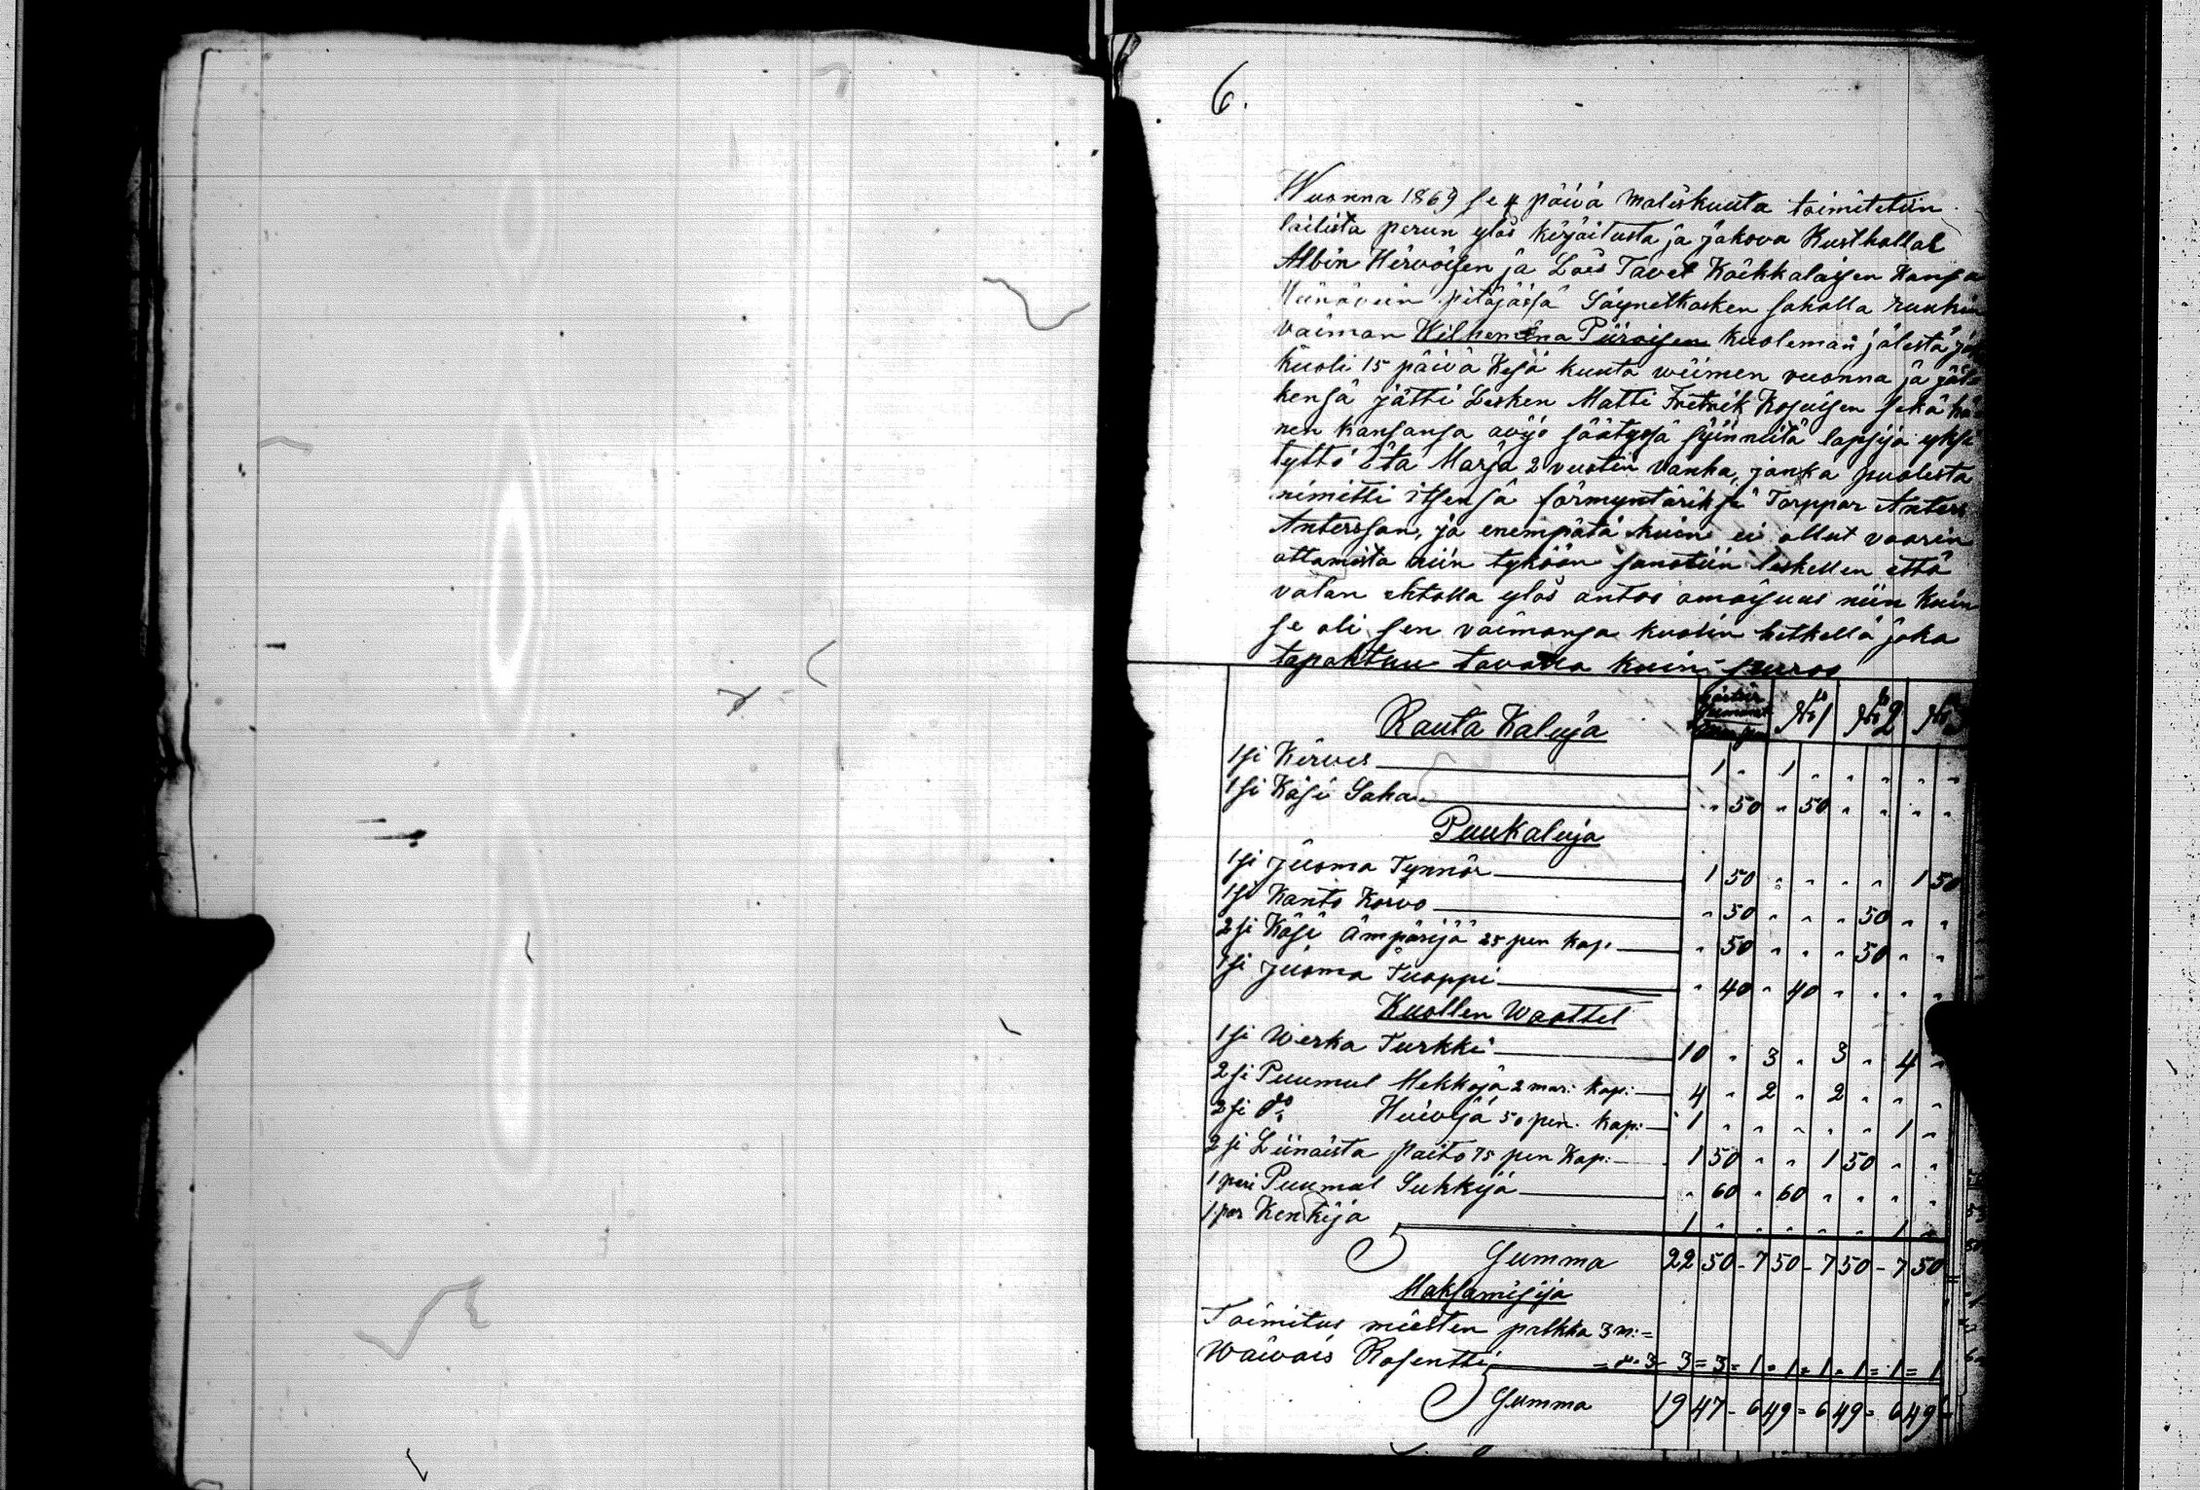 6.
Wuonna 1869 se 4 päivä Maliskuuta toimitetiin
lailista perun ylös kirjoitusta ja jakova Rusthollal
Albin Hirvoisen ja Laės Tavet Koikkalaisen Kansa
Heinävein pitäjässä Säynetkosken sahalla ruukin
vaiman Wilhemina Piiroisen kuoleman jälestä jo
kuoli 15 päivä Kesä kuuta wiimen vuonna ja jäl
kensä jätti Lesken Matti Fretrik Kosuisen sekä hä
nen kansansa avijo säätyssä syinneitä lapsija yksi
tyttö Eta Marja 2 vuotin vanha, jonka puolesta
nimitti itsensä förmyntäriksi Torppar Anters
Antersson, ja enempätä kuin ei ollut vaarin
ottamista niin tykään sanotiin leskellen että
valan ehtolla ylös antoo omaisuus niin kuin
se oli sen vaimonsa kuolin hetkellä joka
tapahtuu tavalla kuin seurroo
Rauta Kaluja No 1 No 2 No
1 si Kirves 1 " 1 " " " " "
1 si Käsi Saha " 50 " 50 " " " "
Puukaluja
1 si Juoma Tynnör 1 50 " " " " 1 50
1 si Kanto Korvo " 50 " " " 50 " "
2 si Käsi Ämpärijä 25 pen kap: " 50 " " " 50 " "
1 si Juoma Tuoppi " 40 " 40 " " " "
Kuollen Waattet
1 si Werka Turkki 10 " 3 " 3 " 4 "
2 si Puumul Mekkoja 2 mar: kap: 4 " 2 " 2 " " "
2 si do Huivija 50 pen. kap: 1 " " " " " 1 "
2 si Liinaista paito 75 pen kap: 1 50 " " 1 50 " "
1 pari Puumul Sukkija " 60 " 60 " " " "
1 par Kenkija 1 " " " " " 1 "
Summa 22 50 - 7 50 - 7 50 - 7 50
Maksamisija
Toimitus miesten palkka 3 m: =
Waivais Rosentti = do 3 - 3 = 3 = 1 = 1 = 1 = 1 = 1 = 1
Summa 19 47 - 6 49 = 6 49 = 6 49